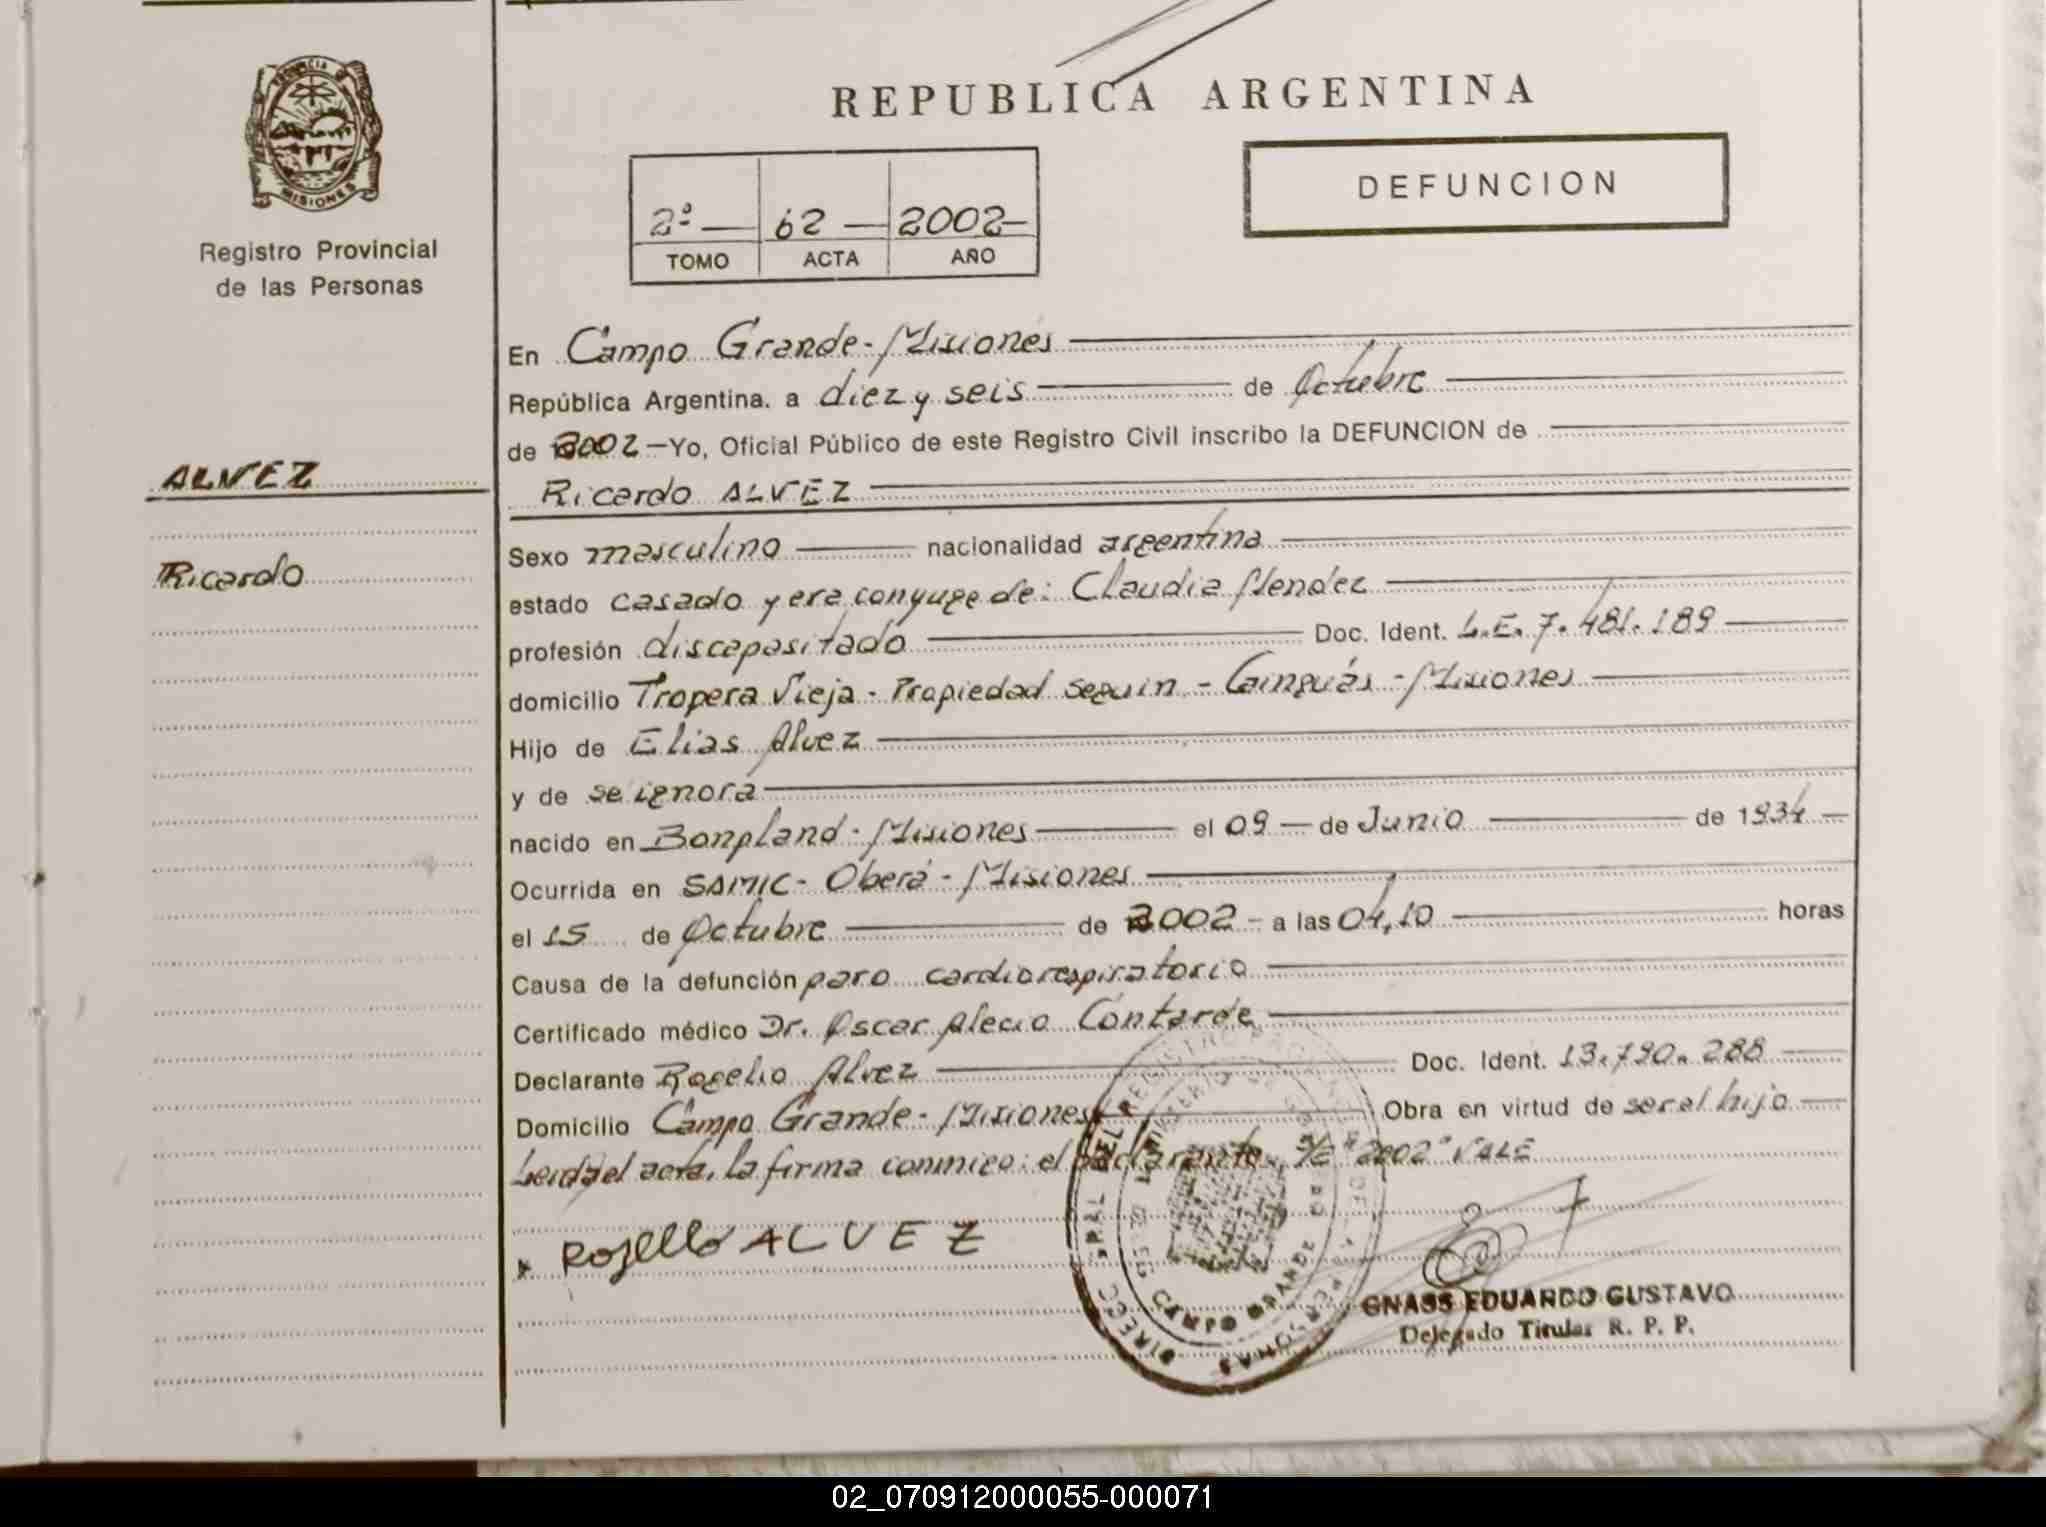 REPUBLICA ARGENTINA
PROVINCIA DE
MISIONES
Registro Provincial
de las Personas
DEFUNCION
2º — 62 — 2002-
TOMO ACTA AÑO
ALVEZ
Ricardo
En Campo Grande-Misiones
República Argentina, a diez y seis de Octubre
de 2002 - Yo, Oficial Público de este Registro Civil inscribo la DEFUNCION de
Ricardo ALVEZ
Sexo masculino nacionalidad argentina
estado casado y era conyuge de: Claudia Mendez
profesión discapasitado Doc. Ident. L.E. 7.481.189
domicilio Tropera Vieja - Propiedad Seguin - Cainguás - Misiones
Hijo de Elias Alvez
y de se ignora
nacido en Bonpland - Misiones el 09 — de Junio de 1934 —
Ocurrida en SAMIC - Oberá - Misiones
el 15 de Octubre de 2002 - a las 04,10 horas
Causa de la defunción paro cardiorespiratorio
Certificado médico Dr. Oscar Alecio Contarde
Declarante Rogelio Alvez Doc. Ident. 13.790.288
Domicilio Campo Grande - Misiones Obra en virtud de ser el hijo
Leida el acta, la firma conmigo: el declarante, S/E "2002" VALE
Rojello ALVEZ
CAMPO GRANDE
GNASS EDUARDO GUSTAVO
Delegado Titular R. P. P.
02_070912000055-000071